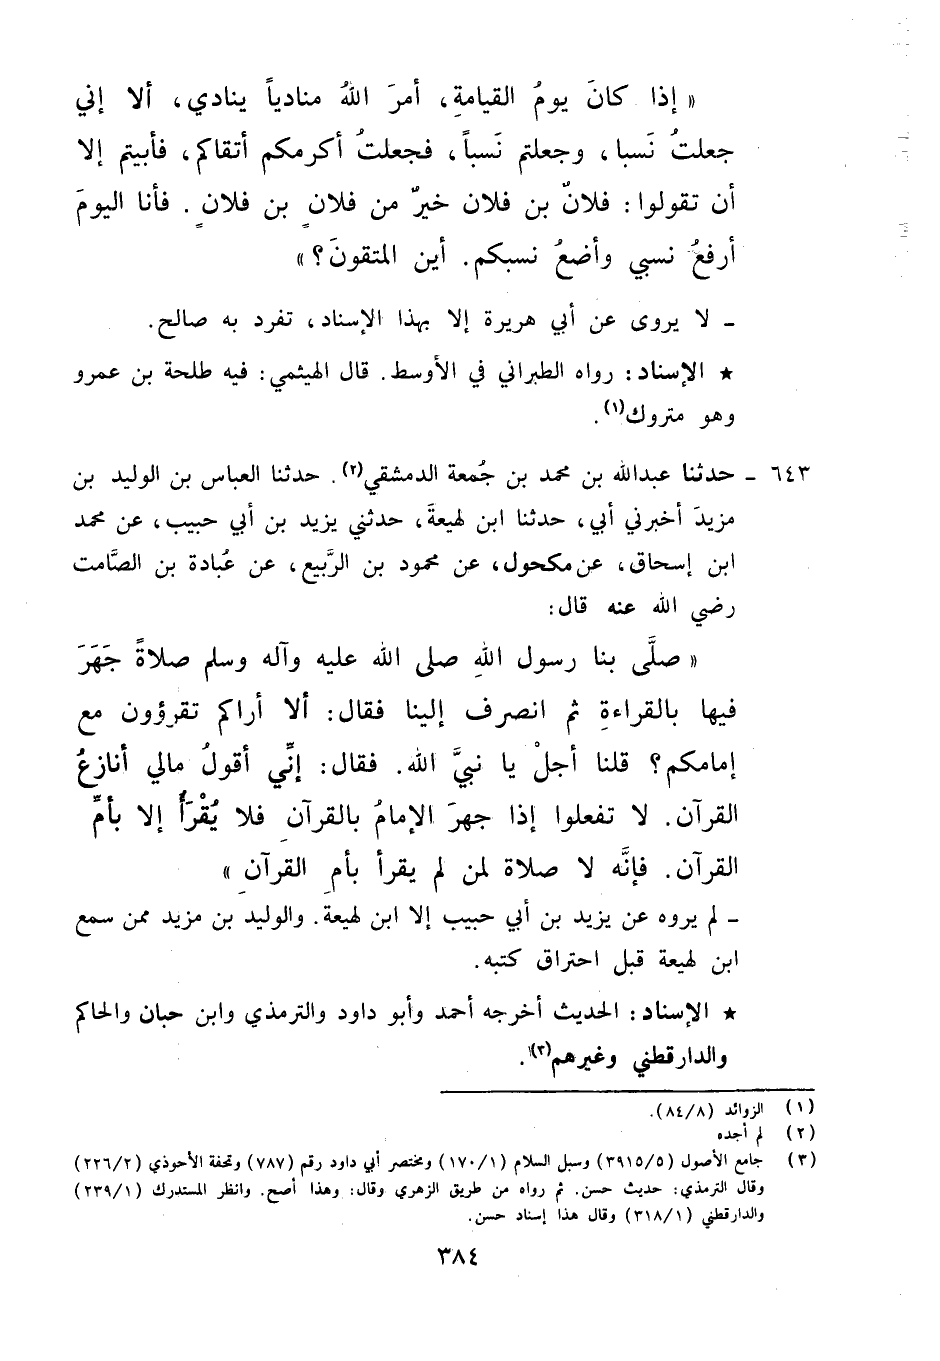 « إذا كانَ يومُ القيامةِ، أمرَ اللهُ منادياً ينادي، ألا إني
جعلتُ نَسبا، وجعلتم نَسباً، فجعلتُ أكرمكم أتقاكم، فأبيتم إلا
أن تقولوا: فلانٌ بن فلان خيرٌ من فلانٍ بن فلانٍ. فأنا اليومَ
أرفعُ نسبي وأضعُ نسبكم. أين المتقونَ؟»
ـ لا يروى عن أبي هريرة إلا بهذا الإسناد، تفرد به صالح.
★ الإسناد: رواه الطبراني في الأوسط. قال الهيثمي: فيه طلحة بن عمرو
وهو متروك(١).
٦٤٣ ـ حدثنا عبدالله بن محمد بن جُمعة الدمشقي(٢). حدثنا العباس بن الوليد بن
مزيدَ أخبرني أبي، حدثنا ابن لهيعةَ، حدثني يزيد بن أبي حبيب، عن محمد
ابن إسحاق، عن مكحول، عن محمود بن الرَّبيع، عن عُبادة بن الصَّامت
رضي الله عنه قال:
« صلَّى بنا رسول اللهِ صلى الله عليه وآله وسلم صلاةً جَهَرَ
فيها بالقراءةِ ثم انصرف إلينا فقال: ألا أراكم تقرؤون مع
إمامكم؟ قلنا أجلْ يا نبيَّ الله. فقال: إنِّي أقولُ مالي أنازعُ
القرآن. لا تفعلوا إذا جهرَ الإمامُ بالقرآنِ فلا يُقْرَأُ إلا بأمِّ
القرآن. فإنَّه لا صلاة لمن لم يقرأ بأمِ القرآنِ »
ـ لم يروه عن يزيد بن أبي حبيب إلا ابن لهيعة. والوليد بن مزيد ممن سمع
ابن لهيعة قبل احتراق كتبه.
★ الإسناد: الحديث أخرجه أحمد وأبو داود والترمذي وابن حبان والحاكم
والدارقطني وغيرهم(٣).
(١) الزوائد (٨٤/٨).
(٢) لم أجده
(٣) جامع الأصول (٣٩١٥/٥) وسبل السلام (١٧٠/١) ومختصر أبي داود رقم (٧٨٧) وتحفة الأحوذي (٢٢٦/٢)
وقال الترمذي: حديث حسن. ثم رواه من طريق الزهري وقال: وهذا أصح. وانظر المستدرك (٢٣٩/١)
والدارقطني (٣١٨/١) وقال هذا إسناد حسن.
٣٨٤